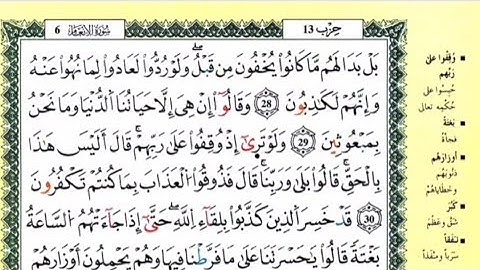 سُورَةُ الأَنْعَامِ 6
حِزْب 13
بَلْ بَدَا لَهُم مَّا كَانُوا۟ يُخْفُونَ مِن قَبْلُ ۖ وَلَوْ رُدُّوا۟ لَعَادُوا۟ لِمَا نُهُوا۟ عَنْهُ
وَإِنَّهُمْ لَكَٰذِبُونَ 28 وَقَالُوٓا۟ إِنْ هِىَ إِلَّا حَيَاتُنَا ٱلدُّنْيَا وَمَا نَحْنُ
بِمَبْعُوثِينَ 29 وَلَوْ تَرَىٰٓ إِذْ وُقِفُوا۟ عَلَىٰ رَبِّهِمْ ۚ قَالَ أَلَيْسَ هَٰذَا
بِٱلْحَقِّ ۚ قَالُوا۟ بَلَىٰ وَرَبِّنَا ۚ قَالَ فَذُوقُوا۟ ٱلْعَذَابَ بِمَا كُنتُمْ تَكْفُرُونَ
30 قَدْ خَسِرَ ٱلَّذِينَ كَذَّبُوا۟ بِلِقَآءِ ٱللَّهِ ۖ حَتَّىٰٓ إِذَا جَآءَتْهُمُ ٱلسَّاعَةُ
بَغْتَةً قَالُوا۟ يَٰحَسْرَتَنَا عَلَىٰ مَا فَرَّطْنَا فِيهَا وَهُمْ يَحْمِلُونَ أَوْزَارَهُمْ
وُقِفُوا عَلَى
رَبِّهِم
حُبِسُوا على
حُكْمِه تعالى
بَغْتَةً
فجأةً
أَوْزَارَهُمْ
ذنوبَهُم
وخطاياهُم
كَبُرَ
شَقَّ وعَظُمَ
نَفَقًا
سَرَبًا ومَنْفَذًا